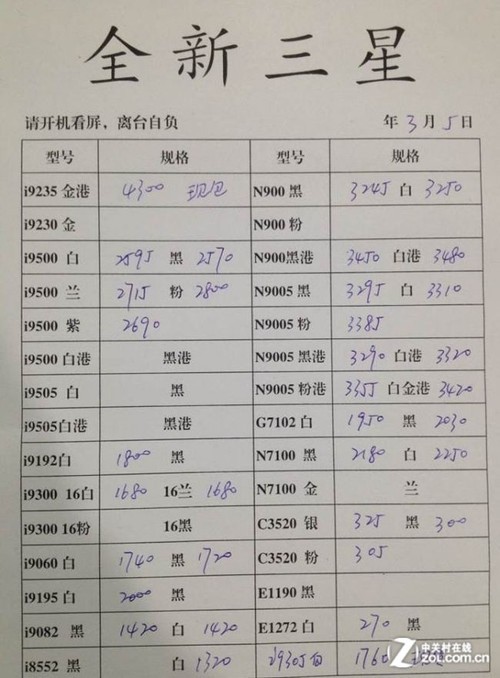 全新三星
请开机看屏，离台自负 年3月5日
型号 规格 型号 规格
i9235 金港 4300 现包 N900 黑 3245 白 3250
i9230 金 N900 粉
i9500 白 2595 黑 2570 N900黑港 3450 白港 3480
i9500 兰 2715 粉 2800 N9005 黑 3295 白 3310
i9500 紫 2690 N9005 粉 3385
i9500 白港 黑港 N9005 黑港 3290 白港 3320
i9505 白 黑 N9005 粉港 3355 白金港 3420
i9505白港 黑港 G7102 白 1950 黑 2030
i9192白 1800 黑 N7100 黑 2180 白 2250
i9300 16白 1680 16兰 1680 N7100 金 兰
i9300 16粉 16黑 C3520 银 325 黑 300
i9060 白 1740 黑 1720 C3520 粉 305
i9195 白 2000 黑 E1190 黑
i9082 黑 1420 白 1420 E1272 白 270 黑
i8552 黑 白 1320 29305白 1760
中关村在线
ZOL.COM.CN